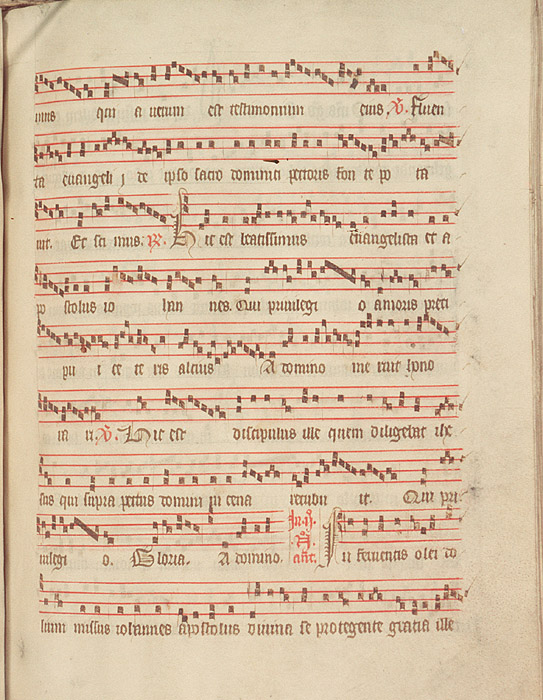 mus qui a uerum est testimonium eius. V. Fluen
ta euangeli j de ipso sacro dominici pectoris fon te po ta
uit. Et sci mus. R. Hic est beatissimus Euangelista et a
po stolus io han nes. Qui priuilegi o amoris preci
pu i ce te ris alcius A domino me ruit hono
ra ri. V. Hic est discipulus ille quem diligebat ihe
sus qui supra pectus domini in cena recubu it. Qui pri
uilegi o. Gloria. A domino. In ij. N. ant. In feruentis olei do
lium missus iohannes apostolus diuina se protegente gratia ille